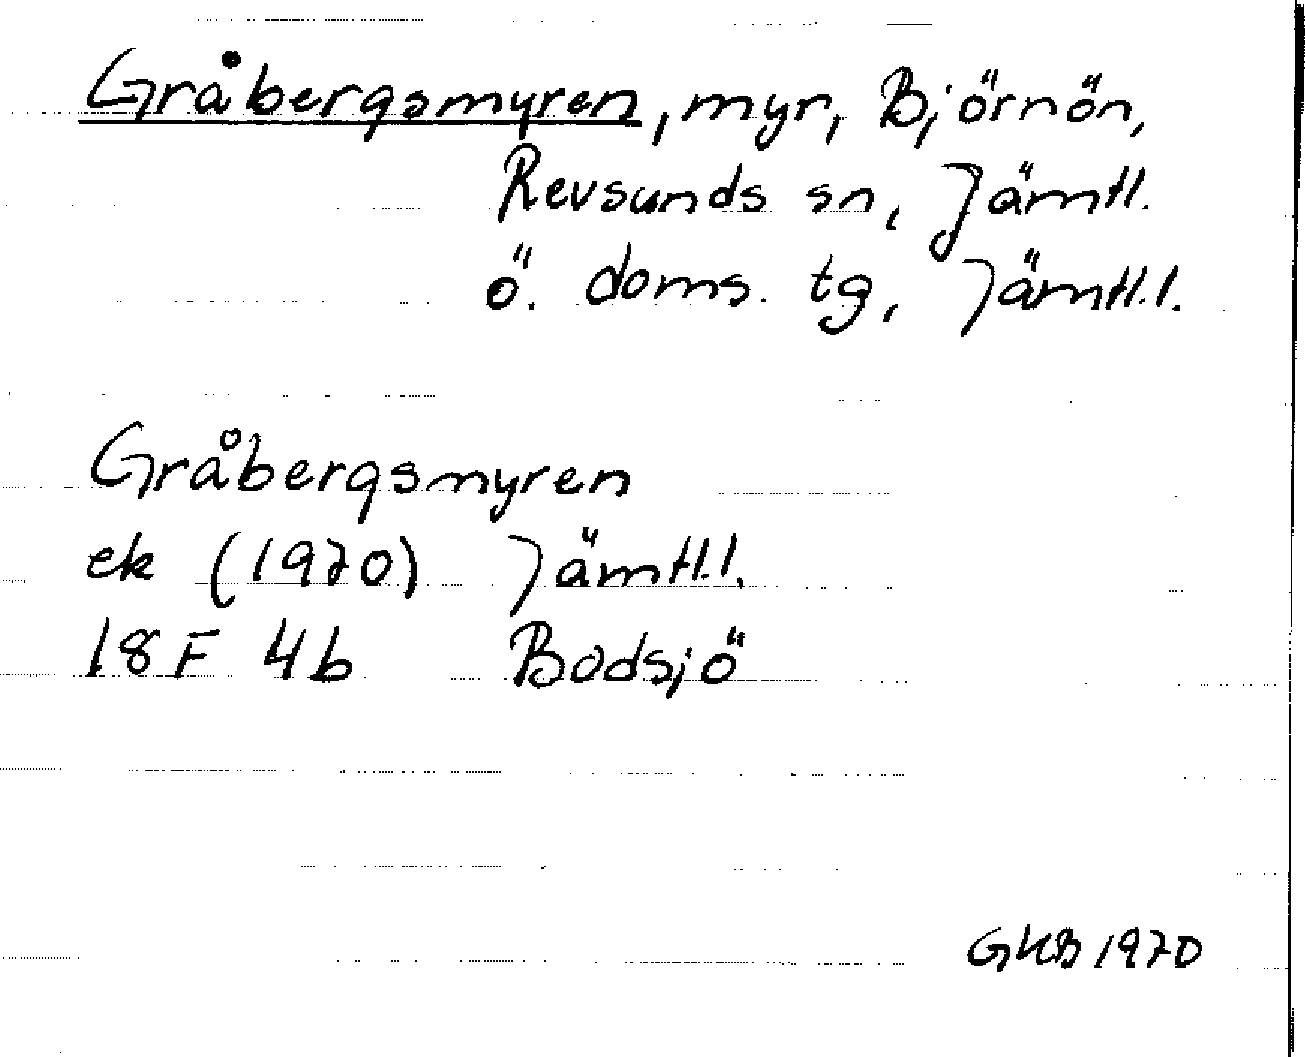 Gråbergsmyren, myr, Björnön,
Revsunds sn, Jämtl.
ö. doms. tg, Jämtl.l.
Gråbergsmyren
ek (1970) Jämtl.l.
18F 4b Bodsjö
GKB 1970